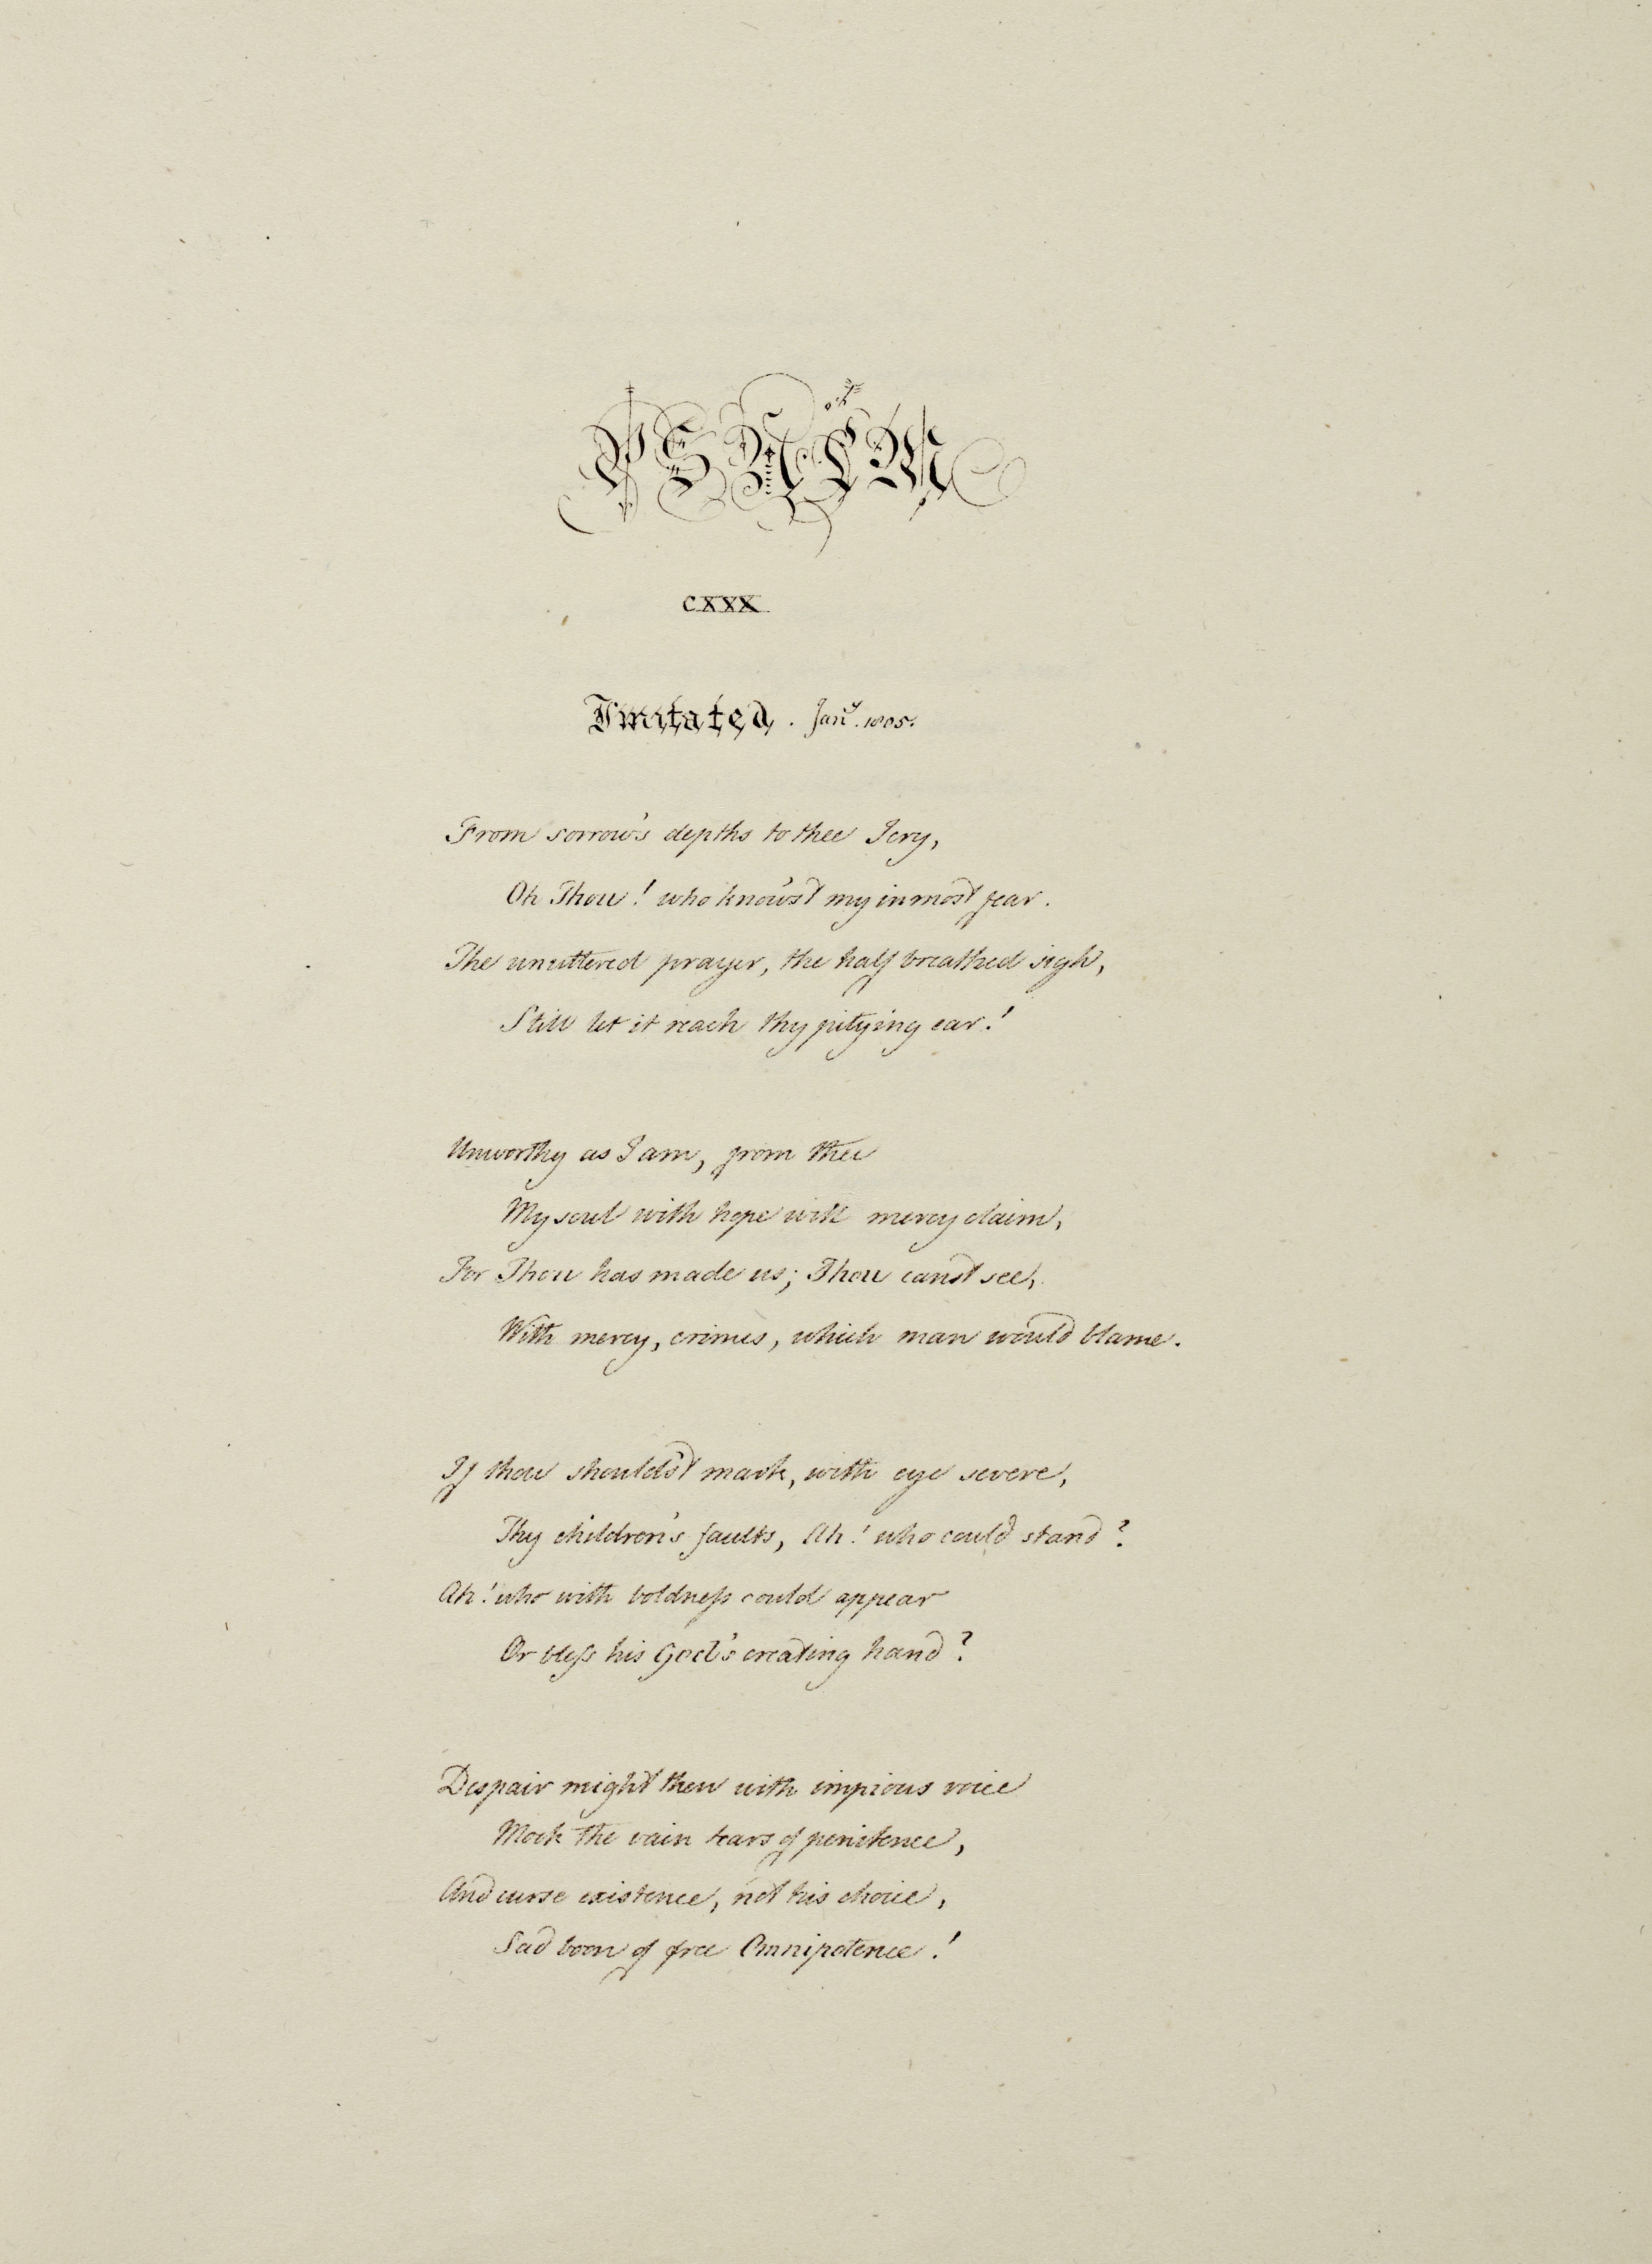 PSALM
CXXX
Imitated. Jan.y 1805.
From sorrow's depths to thee I cry,
Oh Thou! who know'st my inmost fear.
The unuttered prayer, the half breathed sigh,
Still let it reach thy pitying ear!
Unworthy as I am, from thee
My soul with hope will mercy claim,
For Thou has made us; Thou canst see,
With mercy, crimes, which man would blame.
If thou should'st mark, with eye severe,
Thy children's faults, Ah! who could stand?
Ah! who with boldneſs could appear
Or bleſs his God's creating hand?
Despair might then with impious voice
Mock the vain tears of penitence,
And curse existence, not his choice,
Sad boon of free Omnipotence!